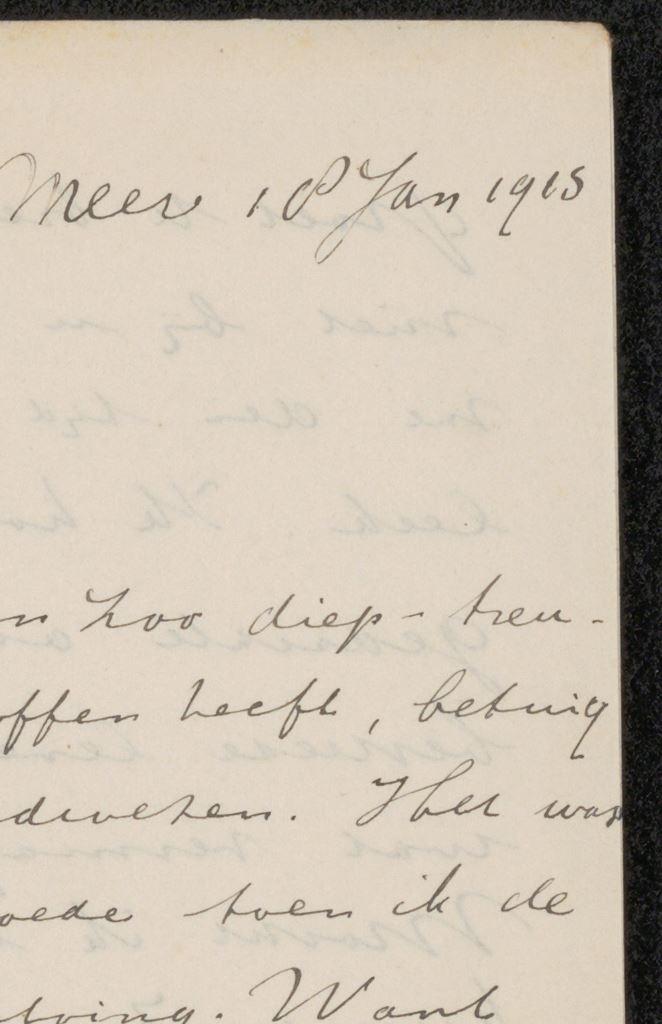 Meer 18 Jan 1915
n zoo diep-treu-
offen heeft, betuig
dwezen. Het was
oede toen ik de
tving. Want